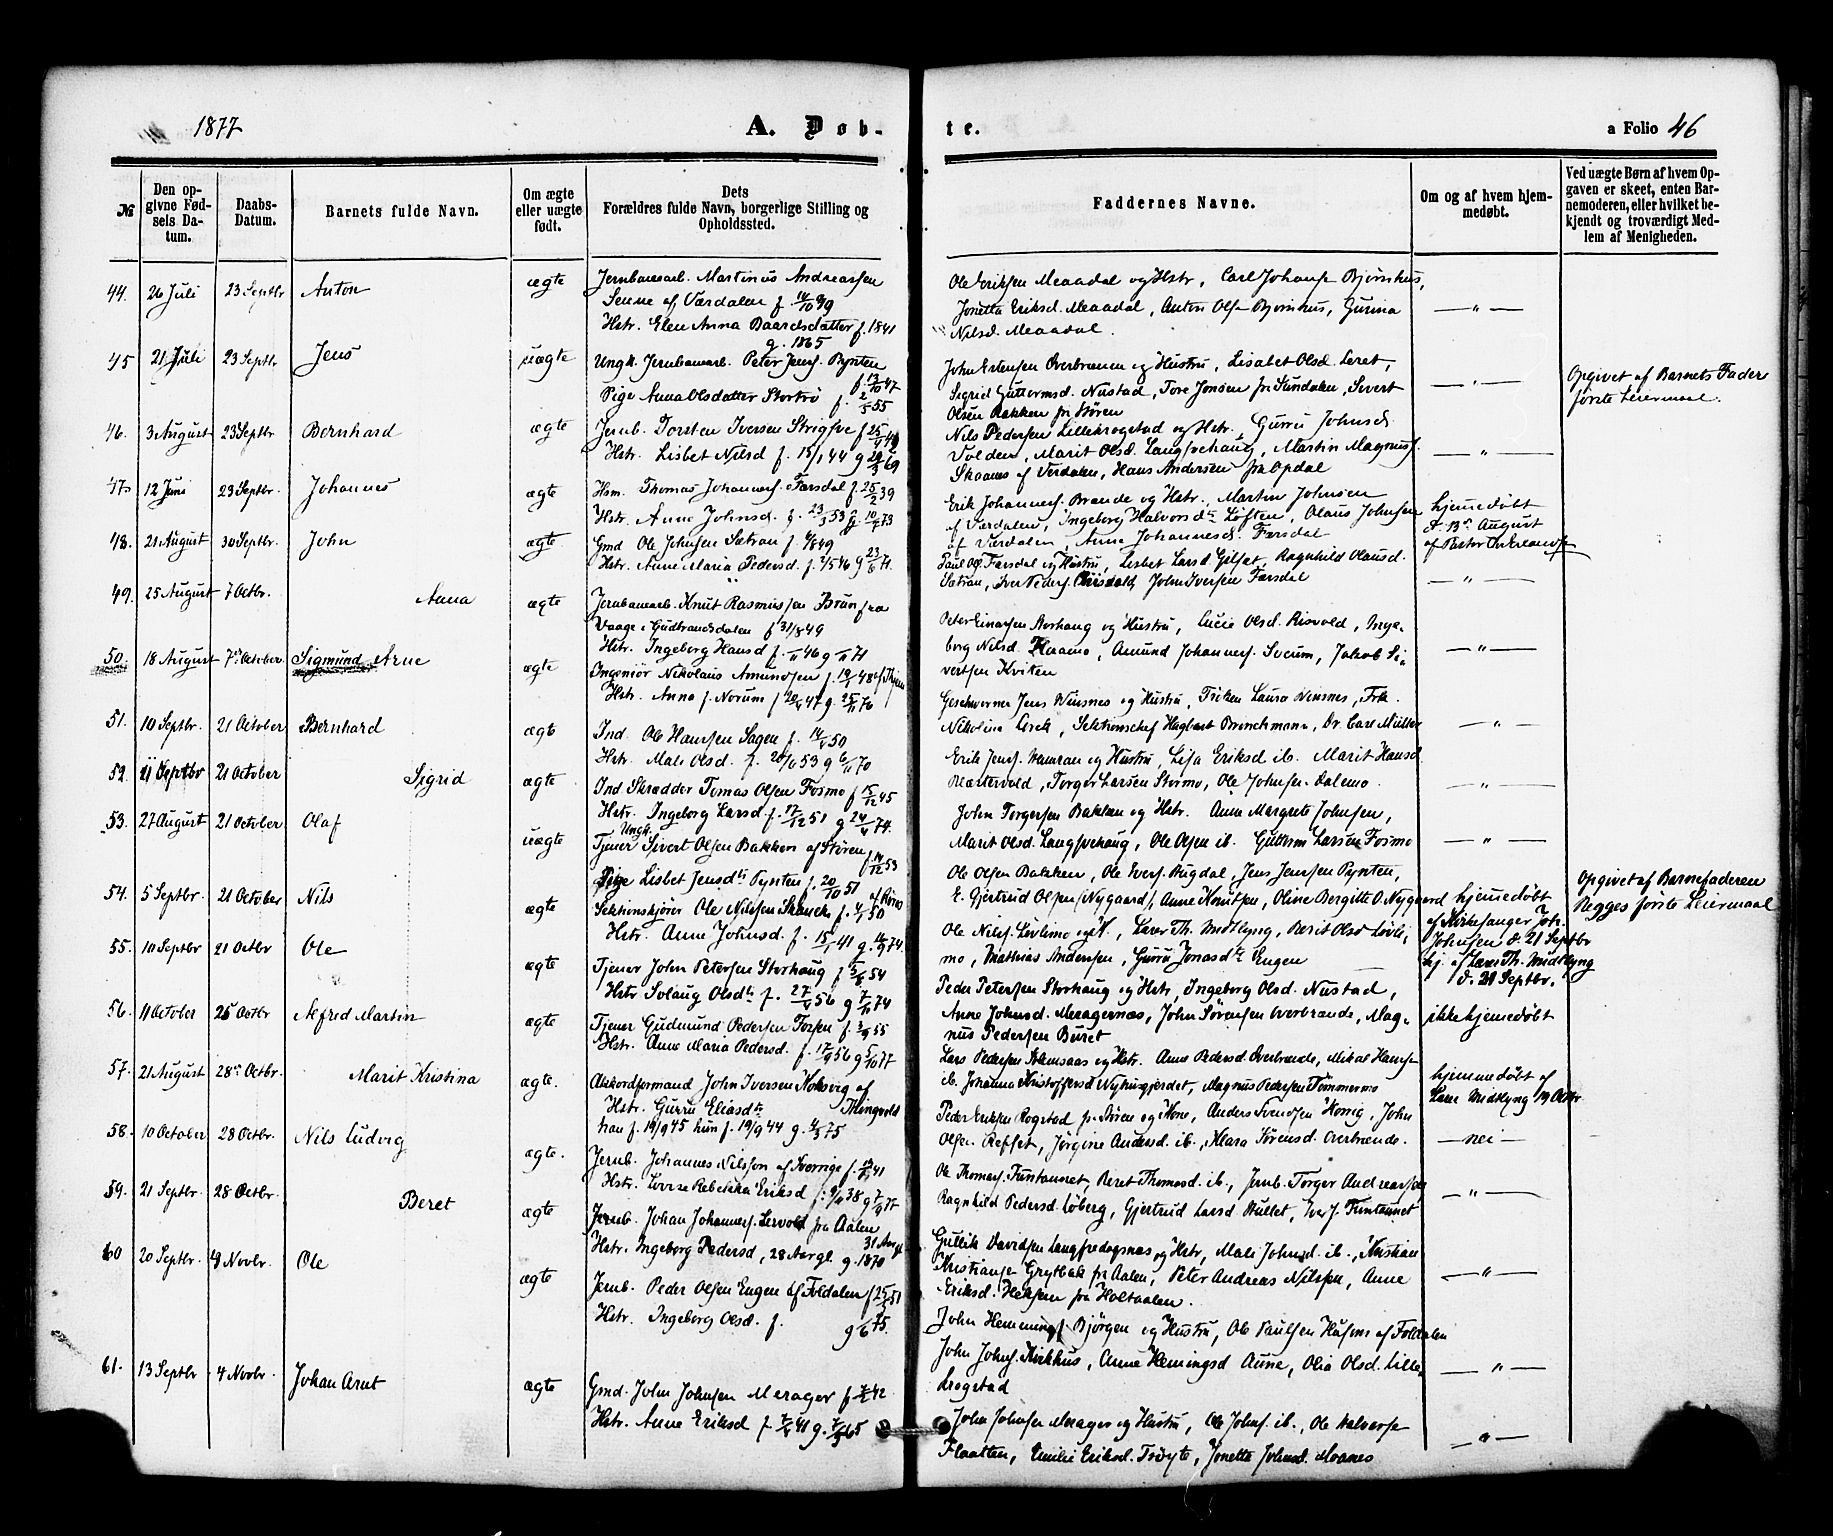 1877
A. Døb-
te.
a Folio 46
№
Den op-
givne Fød-
sels Da-
tum.
Daabs-
Datum.
Barnets fulde Navn.
Om ægte
eller uægte
født.
Dets
Forældres fulde Navn, borgerlige Stilling og
Opholdssted.
Faddernes Navne.
Om og af hvem hjem-
medøbt.
Ved uægte Børn af hvem Op-
gaven er skeet, enten Bar-
nemoderen, eller hvilket be-
kjendt og troværdigt Med-
lem af Menigheden.
44. 26 Juli 23 Septbr Anton ægte
Jernbanearb. Martinus Andreassen
Senne af Værdalen f.
Hstr. Elen Anna Baardsdatter f. 1841
g. 1865
Ole Eriksen Meaadal og Hstr, Carl Johans Bjørnhus,
Jonetta Eriksd. Meaadal, Anton Ols Bjørnhus, Gurina
Nilsd. Meaadal.
— " —
45 21 Juli 23 Septbr Jens uægte
Ungk. Jernbanearb. Peter Jens. Pynten
f. 13/10 47
Pige Anna Olsdatter Stortrø f. 2/5 55
John Estensen Overbrænen og Hustru, Lisabet Olsd. Leret,
Sigrid Guttormsd. Nustad, Tore Jonsen fra Sundalen, Sivert
Olsen Bakken fra Støren
— " —
Opgivet af Barnets Fader
første Leiermaal.
46. 3 August 23 Septbr Bernhard ægte
Jernb. Torsten Iversen
Hstr. Lisbet Nilsd f. 15/1 44 g 29/3 69
Nils Pedersen Lillekrogstad og Hstr, Gurru Johnsd
Volden, Marit Olsd. Langsvehaug, Martin Magnus.
Skaanes af Værdalen, Hans Andersen fra Opdal
— " —
47 12 Juni 23 Septbr. Johannes ægte
Hsm. Thomas Johannes. Farsdal f. 25/2 39
Hstr. Anne Johnsd. f. 23/3 53 g. 10/6 73
Erik Johannes. Brande og Hstr. Martin Johnsen
af Værdalen, Ingeborg Halvorsdtr Løften, Olaus Johnsen
af Værdalen, Anne Johannesd. Farsdal
hjemmedøbt
d. 13de August
af Pastor
48. 21 August 30 Septbr. John ægte
Gmd Ole Johnsen Sætran f. 4/8 49
Hstr. Anne Maria Pedersd. f. 2/5 46 g 23/6 71.
Paul Ols. Farsdal og Hustru, Lisbet Larsd Gilset, Ragnhild Olausd.
Sætran, Iver Peders. John Iversen Farsdal
— " —
49. 25 August 7 Octbr. Anna ægte
Jernbanearb. Knut Rasmussen Brun fra
Vaage i Gudbrandsdalen f 31/8 49
Hstr. Ingeborg Hansd f. 46 g 71
Peter Einarsen Storhaug og Hustru, Lucie Olsd. Risvold, Inge-
borg Nilsd. Flaamo, Amund Johannes. Sveum, Jakob Si-
vertsen Kviten
— " —
50. 18 August 7de October Sigmund Arne ægte
Ingeniør Nikolaus Amundsen f. 19/1 48 af Thjem
Hstr. Anna f. Norum f 20/4 47 g. 25/11 70
Geschworner Jens Wensnes og Hustru, Frøken Laura Wensnes, Frk.
Nikoline Lerch, Sektionschef Hagbart Brinchmann, Dr. Carl Müller
— " —
51. 10 Septbr. 21 October Bernhard ægte
Ind. Ole Hansen Sagen f. 14/5 50
Hstr. Mali Olsd. f. 20/11 53 g 6/11 70
Erik Jens. Hamran og Hustru, Lisa Eriksd ib. Marit Hansd
Blæstervold, Torger Larsen Stormo, Ole Johnsen Dalemo
— " —
52. 11 Septbr 21 October Sigrid ægte
Ind Skrædder Tomas Olsen Fosmo f 15/12 45
Hstr. Ingeborg Larsd. f. 17/12 51 g 24/4 74.
John Torgersen Bakken og Hstr. Anne Margrete Johnsen,
Marit Olsd. Langsvehaug, Ole Olsen ib. Guttorm Larsen Fosmo
— " —
53. 27 August 21 October Olaf uægte
Ungk.
Tjener Sivert Olsen Bakken af Støren
f. 14/12 53
Pige Lisbet Jensdtr Pynten f. 20/10 51
Ole Olsen Bakken, Ole Evers. Rugdal, Jens Jensen Pynten,
E. Gjertrud Olsen (Nygaard), Anne Knutsen, Oline Bergitte O. Nygaard
Opgivet af Barnefaderen
Begges første Leiermaal
54. 5 Septbr 21 October Nils ægte
Sektionskjører Ole Nilssen Skanck f. 4/5 50
af Røros
Hstr. Anne Johnsd. f. 15/1 41 g. 74.
Ole Nils. Løvlimo og H., Laver Th. Midtlyng, Berit Olsd Løvli-
mo, Mathias Andersen, Gurru Jonasdtr Engen
hjemmedøbt
af Kirkesanger Joh.
Johnsen d. 21 Septbr
55. 10 Septbr 21 Octbr Ole ægte
Tjener John Petersen Storhaug f 5/6 54
Hstr Solaug Olsdtr f. 27/4 56 g 7/11 74
Peder Petersen Storhaug og Hstr, Ingeborg Olsd. Nustad,
Anne Johnsd. Meragernæs, John Sørensen Overbrande, Mag-
nus Pedersen Buret
hj. af Lars Th. Midtlyng
d. 21 Septbr.
56. 11 October 25 Octbr Alfred Martin ægte
Tjener Gudmund Pedersen Forsen f. 3/9 55
Hstr. Anne Maria Pedersd. f. 17/9 56 g 5/10 77
Lars Pedersen og Hstr. Anne Pedersd. Overbrænde, Mikal Hansen
ib. Johanna Kristoffersd Nyhusgjerdet, Magnus Pedersen Tømmermo
ikke hjemmedøbt
57. 21 August 28de Octbr. Marit Kristina ægte.
Akkordformand John Iversen Koksvig af
Thingvold
Hstr. Gurru Eliasdtr
han f. 19/9 45 hun f. 19/9 44 g. 4/3 75
Peder Eriksen Rogstad fr. Støren og Kone, Anders Svendsen Kønig, John
Olsen Refset, Jørgine Andersd. ib., Klara Sørensd. Overbrænde.
hjemmedøbt af
Lars Midtlyng 19 Octbr
58. 10 October 28 Octbr. Nils Ludvig ægte.
Jernb. Johannes Nilsson af Sverrige f. 41
Hstr. Lovise Rebekka Eriksd f: 38 g 7/9 77
Ole Thomas. Funtaunet, Beret Thomasd. ib., Jernb. Torger Andreassen
Ragnhild Pedersd. Løberg, Gjertrud Larsd. Hullet, Iver J. Funtaunet
— nei —
59. 21 Septbr. 28 Octbr. Beret ægte
Jernb. Johan Johannes. Lervold fra Aalen
31 Aarg.
Hstr. Ingeborg Pedersd, 28 Aar gl. g. 1870
Gullik Davidsen Langfredagsnæs og Hstr, Mali Johnsd. ib., Kristian
Kristianse Grytbak fra Aalen, Peter Andreas Nilssen, Anne
Eriksd. Heksem fra Holtaalen.
— " —
60 20 Septbr. 4 Novbr. Ole ægte
Jernb. Peder Olsen Engen af Foldalen f 25/5 51
Hstr. Ingeborg Olsd. f. g 75.
John Hemmings Bjørgen og Hustru, Ole Paulsen Husum af Foldalen
John Johns. Kirkhus, Anne Hemingsd Aune, Olia Olsd. Lille-
krogstad
— " —
61. 13 Septbr 4 Novbr. Johan Arnt ægte
Gmd. John Johnsen Merager f 42
Hstr. Anne Eriksd f 7/4 41 g. 7/3 65
John Johnsen Merager og Hustru, Ole Johns. ib., Ole Halvorse
Flaatten, Emilie Eriksd. Trøyte, Jonetta Johnsd. Moanes
— " —